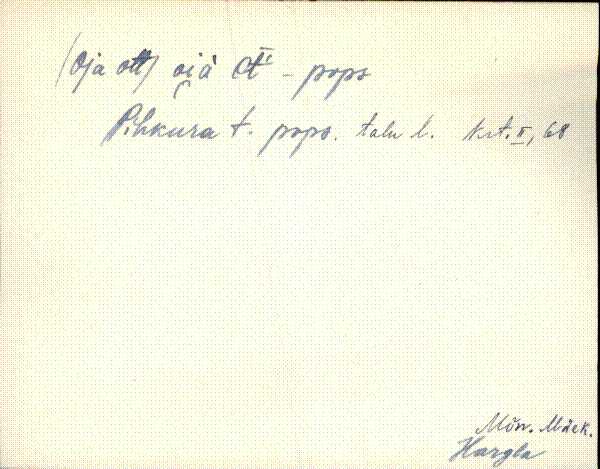 (Oja ott) oi̯a ot̄́ – pops
Pihkura t. pops. talu l. Krt. II, 68
Mõn. Mäek.
Hargla